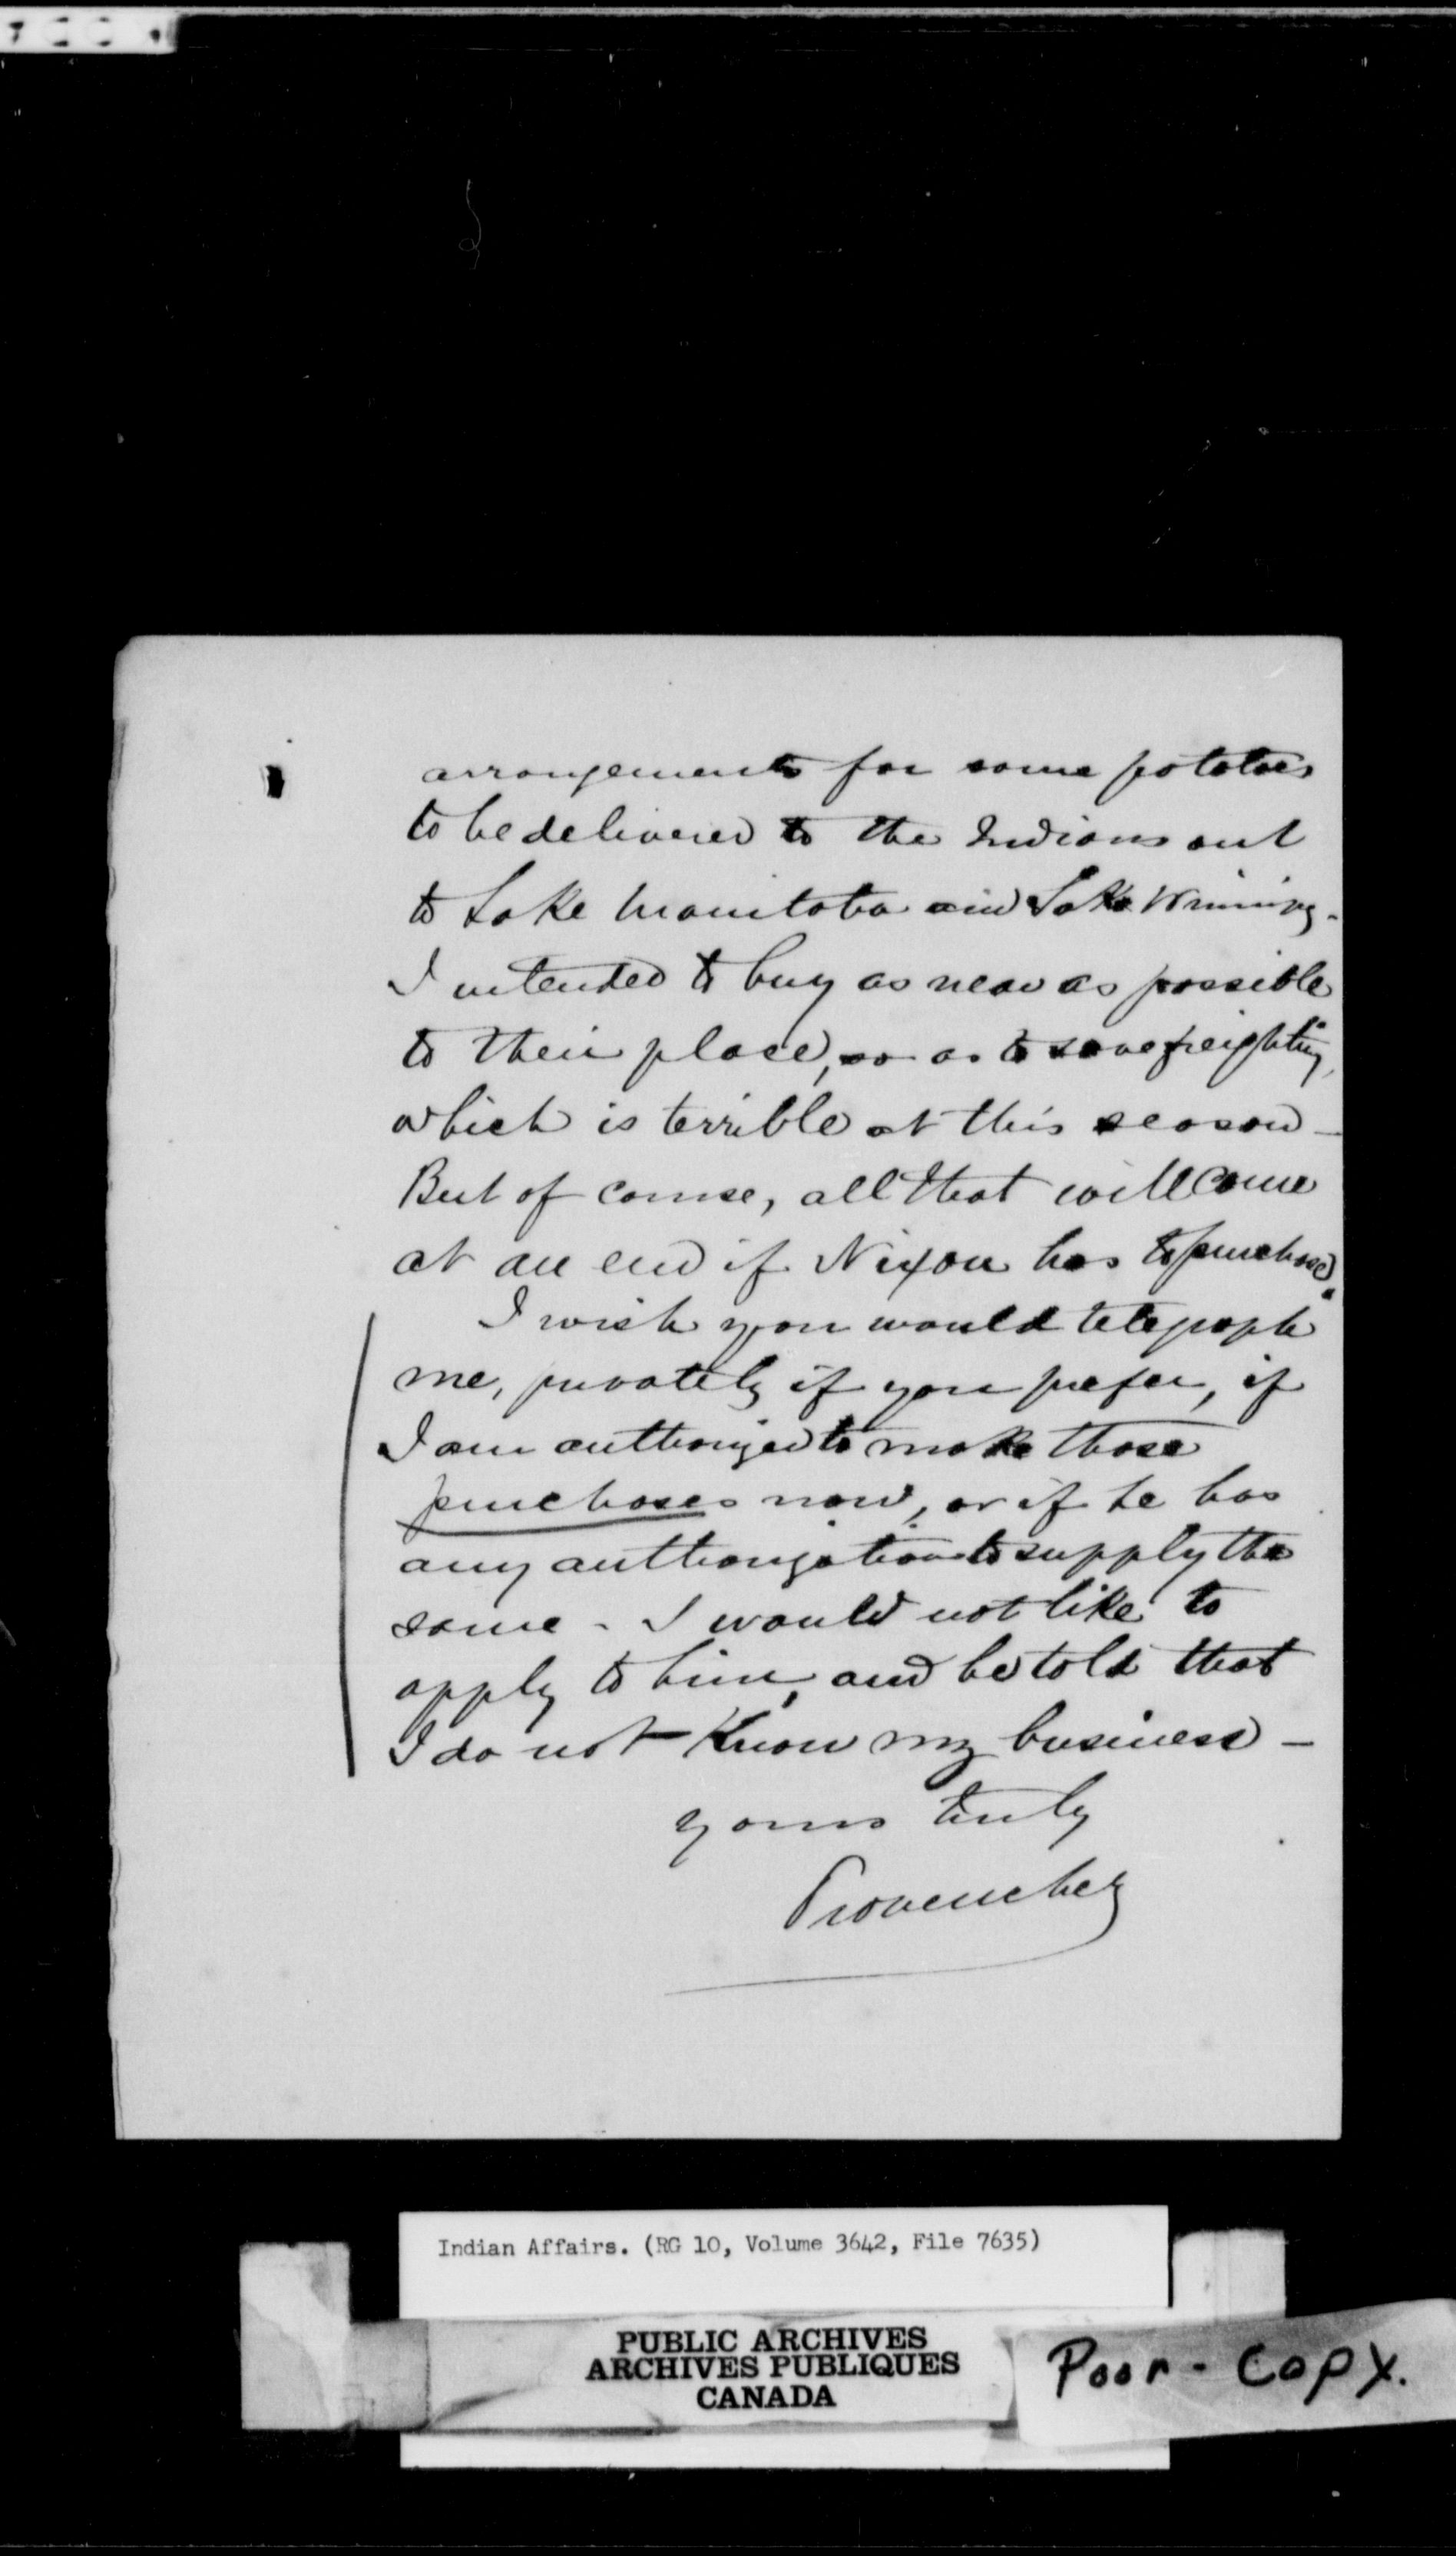 arrangements for some potatoes
to be delivered to the Indians out
to Lake Manitoba and Lake Winnipeg -
I intended to buy as near as possible
to their place, so as to save freighting,
which is terrible at this season -
But of course, all that will come
at an end if Nixon has to purchase.
I wish you would telegraph
me, privately if you prefer, if
I am authorized to make those
purchases now, or if he has
any authorization to supply the
same - I would not like to
apply to him, and be told that
I do not know my business -
yours truly
Provencher
Indian Affairs. (RG 10, Volume 3642, File 7635)
PUBLIC ARCHIVES
ARCHIVES PUBLIQUES
CANADA
Poor - Copy.